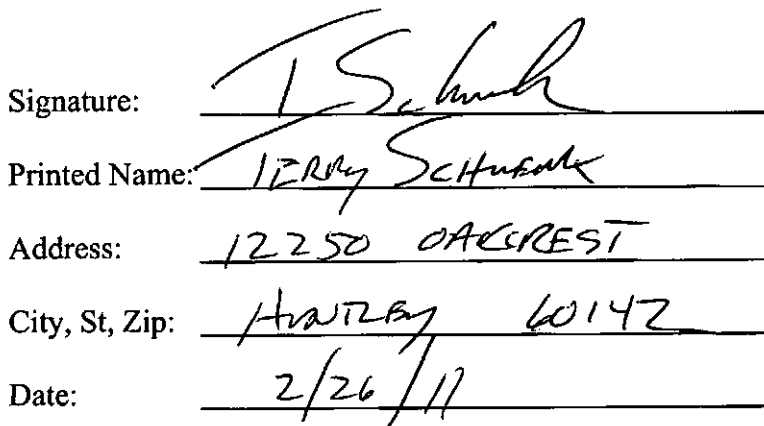 Signature: T Schwenk
Printed Name: TERRY SCHWENK
Address: 12250 OAKCREST
City, St, Zip: HUNTLEY 60142
Date: 2/26/11